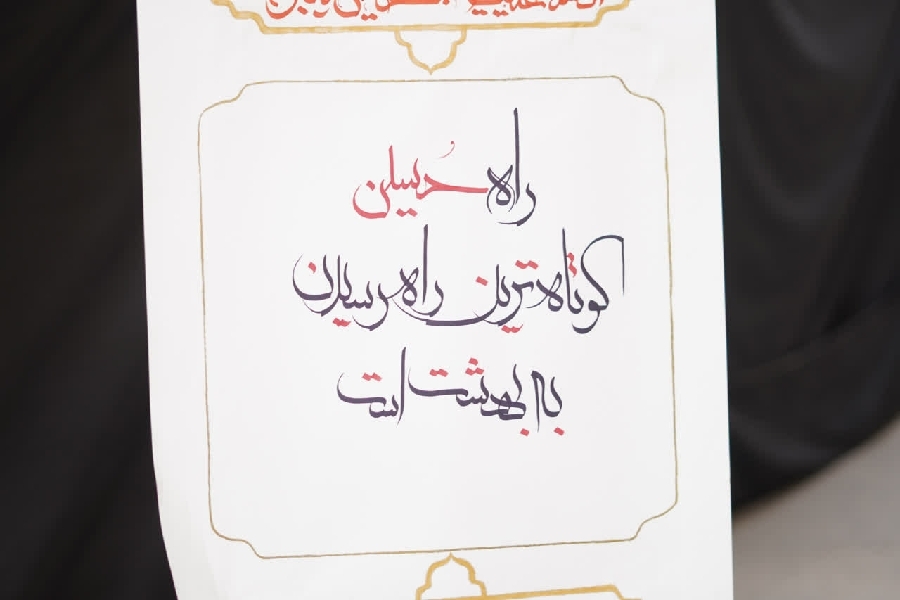 راه حُسین
کوتاه‌ترین راه رسیدن
به بهشت است